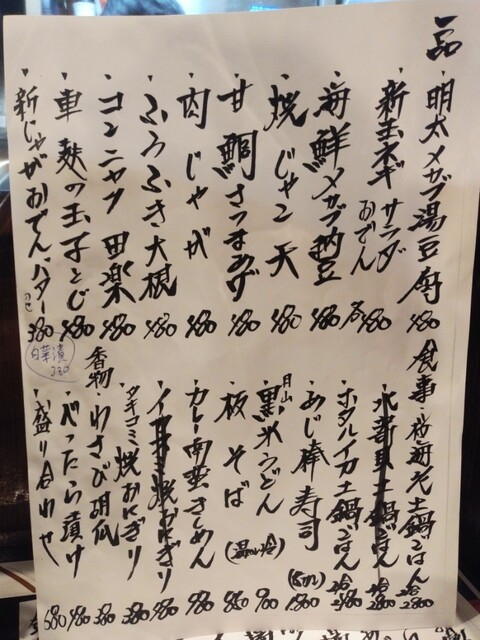 一品
・明太メカブ湯豆腐 480
・新玉ネギ サラダ 480
おでん
・海鮮メカブ納豆 480
・焼じゃこ天 480
・甘鯛さつまあげ 480
・肉じゃが 480
・ふろふき大根 480
・コンニャク田楽 480
・車麩の玉子とじ 480
・新じゃがおでん バターのせ 380
食事
・桜海老土鍋ごはん 2合2800
土鍋ごはん 2合2800
・ホタルイカ土鍋ごはん 2合2480
・あじ棒寿司 (5カン)
・月山 黒米うどん 900
・板そば (温or冷) 850
・カレー南蛮きしめん 980
焼おにぎり
・タキコミ焼おにぎり 380
香物
・わさび胡瓜 380
・べったら漬け 480
・盛り合わせ 580
白菜漬
330